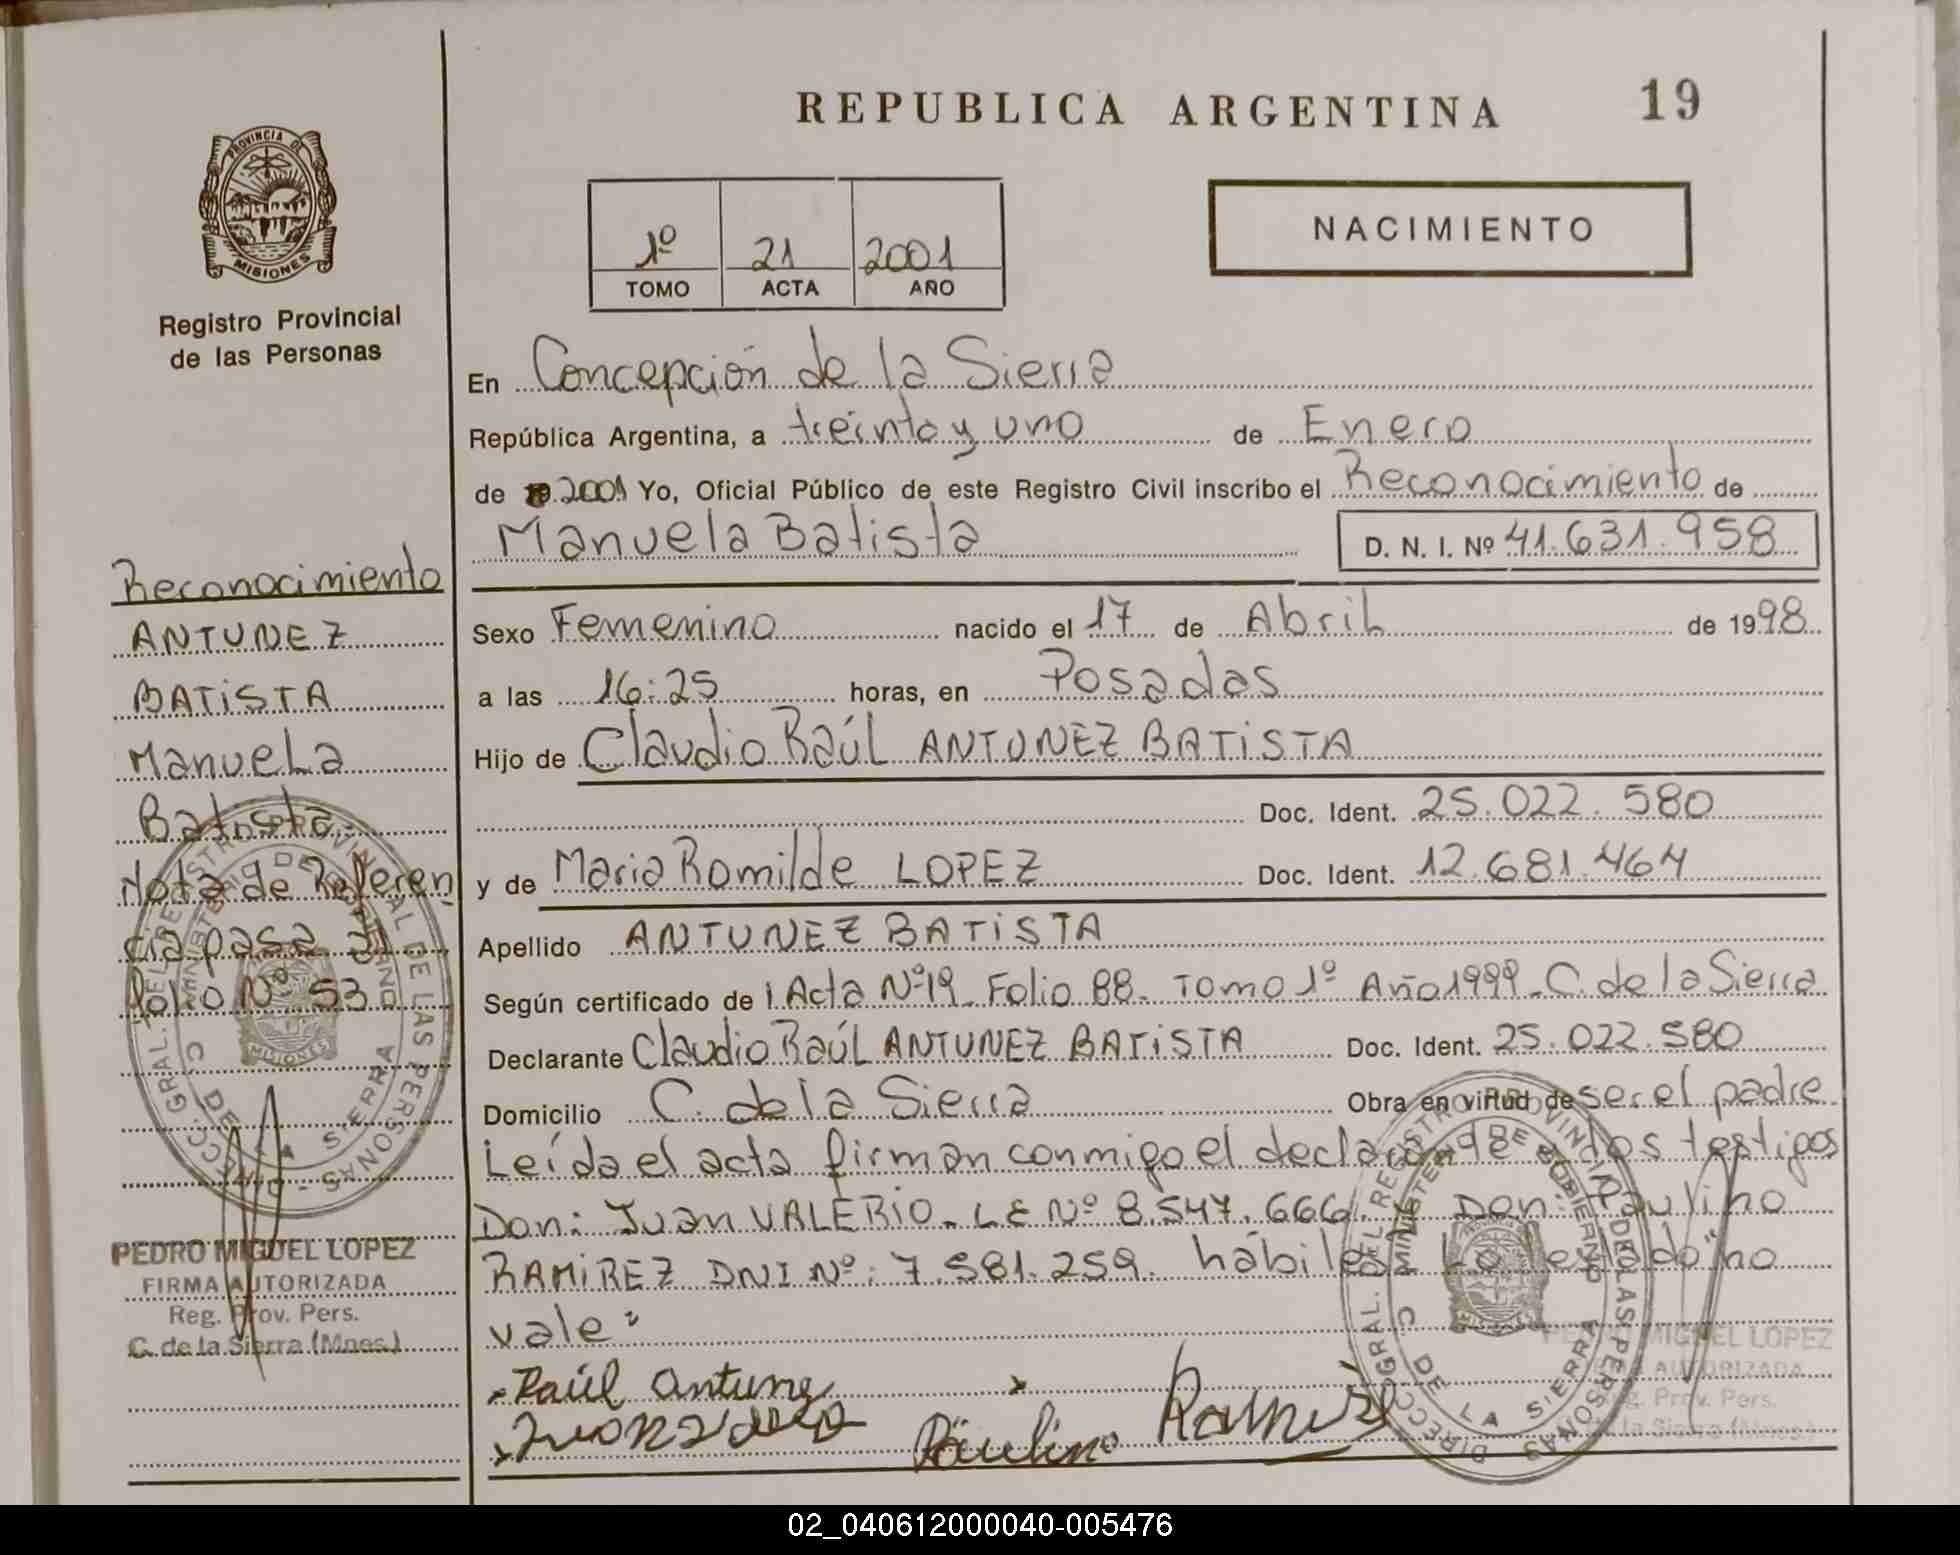 REPUBLICA ARGENTINA
19
PROVINCIA DE
MISIONES
Registro Provincial
de las Personas
1º 21 2001
TOMO ACTA AÑO
NACIMIENTO
En Concepción de la Sierra
República Argentina, a treinta y uno de Enero
de 2001 Yo, Oficial Público de este Registro Civil inscribo el Reconocimiento de
Manuela Batista D. N. I. Nº 41.631.958
Sexo Femenino nacido el 17 de Abril de 1998
a las 16:25 horas, en Posadas
Hijo de Claudio Raúl ANTUNEZ BATiSTA
Doc. Ident. 25.022.580
y de Maria Romilde LOPEZ Doc. Ident. 12.681.464
Apellido ANTUNEZ BATiSTA
Según certificado de Acta Nº19 Folio 88. Tomo 1º Año 1999. C. de la Sierra
Declarante Claudio Raúl ANTUNEZ BATiSTA Doc. Ident. 25.022.580
Domicilio C. de la Sierra Obra en virtud de ser el padre
Leída el acta firman conmigo el declarante dos testigos
Don: Juan VALERIO. LE Nº 8.547.666 y Don: Paulino
RAMiREZ DNI Nº: 7.581.259. hábiles no
vale
Raúl Antunez
Paulino Ramirez
Reconocimiento
ANTUNEZ
BATiSTA
Manuela
Batista.
Nota de Referen
cia pasa al
Folio Nº 53
DIRECC. GRAL. DEL REGISTRO PROVINCIAL DE LAS PERSONAS
MINISTERIO DE GOBIERNO
C. DE LA SIERRA
MISIONES
PEDRO MIGUEL LOPEZ
FIRMA AUTORIZADA
Reg. Prov. Pers.
C. de la Sierra (Mnes.)
DIRECC. GRAL. DEL REGISTRO PROVINCIAL DE LAS PERSONAS
MINISTERIO DE GOBIERNO
C. DE LA SIERRA
PEDRO MIGUEL LOPEZ
FIRMA AUTORIZADA
Reg. Prov. Pers.
C. de la Sierra (Mnes.)
02_040612000040-005476